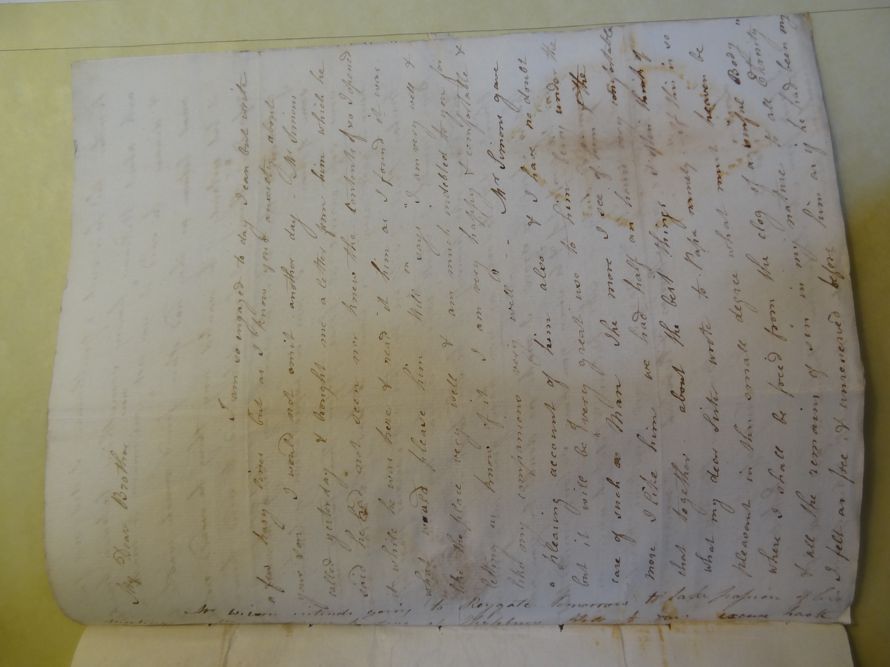 My Dear Brother
I am so engaged to day I can but write
a few hasty lines but as I know your anxiety about
your son I would not omit another day Mr Simons
called yesterday & brought me a letter from him which he
said he had not seen nor knew the Contents of so I opend
it while he was here & read it him as I found it was
what would please him Will m says "I am very well &
like the place very well & am much indebted to you for
letting us know of it I am very happy & comfortable &
like my companions very well" - - Mr Simons gave
a pleasing account of him also & I have no doubt
but it will be of very great use to him being under the
care of such a Man The more I see of him the
more I like him we had half an hours very profitable
chat together about the best things I often think of
what my dear Sister wrote to Papa namely if this is so
pleasant in this small degree what must heaven be
where I shall be freed from the clog of a sinful Body"
& all the remains of sin in my nature to all Eternity
I felt as free & unreserved before him as if he had been my
Mr Wilson intends going to Reygate tomorrow to take possession of his
excuse haste